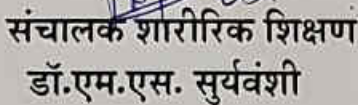 संचालक शारीरिक शिक्षण
डॉ.एम.एस. सुर्यवंशी